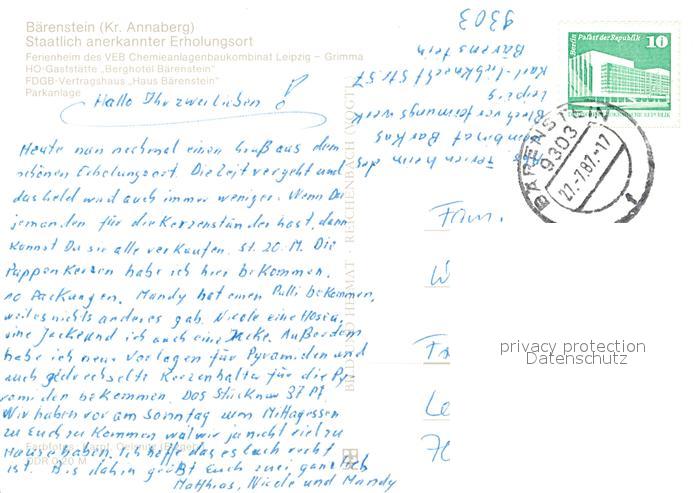 Bärenstein (Kr. Annaberg)
Staatlich anerkannter Erholungsort
Ferienheim des VEB Chemieanlagenbaukombinat Leipzig – Grimma
HO-Gaststätte „Berghotel Bärenstein"
FDGB-Vertragshaus „Haus Bärenstein"
Parkanlage
Hallo Ihr zwei Lieben!
Heute nun nochmal einen Gruß aus dem
schönen Erholungsort. Die Zeit vergeht und
das Geld wird auch immer weniger. Wenn Du
jemanden für die Kerzenständer hast, dann
kannst Du sie alle verkaufen. St. 20 M. Die
Puppen Kerzen habe ich hier bekommen.
10 Packungen. Mandy hat einen Pulli bekommen,
weil es nichts anderes gab. Nicole eine Hose u.
eine Jacke und ich auch eine Jacke. Außerdem
habe ich neue Vorlagen für Pyramiden und
auch gedrechselte Kerzenhalter für die Py-
ramiden bekommen. Das Stück nur 37 Pf.
Wir haben vor am Sonntag zum Mittagessen
zu Euch zu kommen weil wir ja nicht viel zu
Hause haben. Ich hoffe das es Euch recht
ist. Bis dahin grüßt Euch zwei ganz lieb
Matthias, Nicole und Mandy
Farbfotos:
DDR 0,20 M
BILD UND HEIMAT · REICHENBACH (VOGTL)
Ferienheim des
Kombinat Barkas
Blechverformungswerk
Leipzig
Karl-Liebknecht Str. 57
Bärenstein
9303
Berlin Palast der Republik
10
DEUTSCHE DEMOKRATISCHE REPUBLIK
BÄRENSTEIN
9303
27.-7.87.-17
Fam.
W
Fr
Le
70
privacy protection
Datenschutz